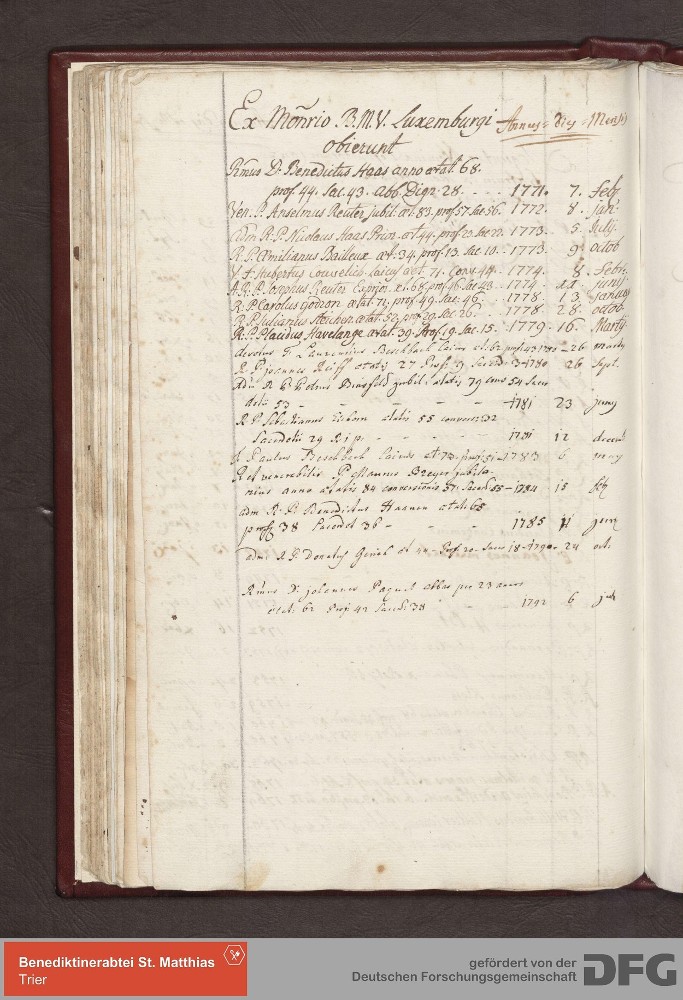 Ex Moñrio B.M.V. Luxemburgi Annus = dies = Mensis
obierunt
Rmus D. Benedictus Haas anno ætat. 68.
prof. 44. Sac. 43. abb. Dign. 28. - - - 1771. 7. feb.
Ven. P. Anselmus Reuter jubil. æt. 83. prof. 57. sac. 56. 1772. 8. jan.
adm R. P. Nicolaus Haas Prior. æt. 44. prof. 23. sac. 22. 1773. 5. july.
R. P. Æmilianus Bailleux æt. 34. prof. 13. Sac. 10. - 1773. 9. octob
V. f. Hubertus laicus æt. 71. Conv. 44. - 1774. 8. febr.
A. R. P. Josephus Reuter Exprior. æt. 68. prof. 46. Sac. 43. - 1774 - 22. junij
R. P. Carolus Godron ætat. 71. prof. 49. Sac. 46. - 1778. 13. januar
R. P. Julianus ætat. 52. prof. 29. Sac. 26. - 1778. 28. octob
R. P. Placidus Havelange ætat. 39. Prof. 19. Sac. 15. - 1779 - 16. Martij
devotus F. Laurentius Beschback laicus æt. 62 prof. 43 1780 - 26 martij
R. P. joannes Reiff ætatis 27 Prof. 9 Sacerd. 3 - 1780 26 Sept.
adm R. P. Petrus jubil. ætatis 79 conv 54 Sacer
dotii 53 - - - - 1781 23 jany
R P Sebastianus ætatis 55 conversi 32
Sacerdotii 29 R i p. - - - - 1781 12 decemb
f. Paulus Beschbach laicus æt. 73. prof. 51 - 1783 6 may
R et venerabilis P. Maurus Breyer jubila-
rius anno ætatis 84 conversionis 57. Sacerd. 55 - 1784 - 15 feb
adm R. P. Benedictus Haanen ætat. 65
prof. 38 Sacerdot 36 - - - - 1785 11
adm. R. P. Donatus æt 44 - Prof. 20 - Sacer 18 - 1790 - 24 oct.
Rmus D. joannes Paquet abbas per 23 annos
ætat. 62 Prof. 42 Sacerd. 38 - 1792 6
Benediktinerabtei St. Matthias
Trier
gefördert von der
Deutschen Forschungsgemeinschaft
DFG